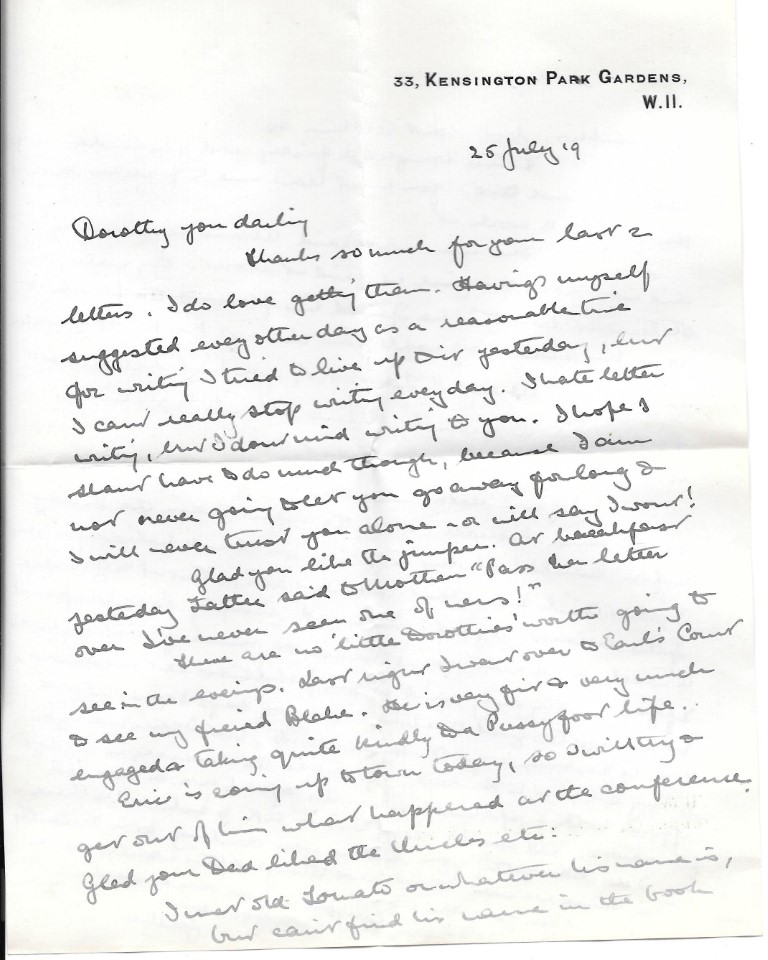 33, KENSINGTON PARK GARDENS,
W.11.
25 July '19
Dorothy you darling
Thanks so much for your last 2
letters. I do love getting them. Having myself
suggested every other day as a reasonable time
for writing I tried to live up to it yesterday, but
I can't really stop writing everyday. I hate letter
writing, but I don't mind writing to you. I hope I
shan't have to do much though, because I am
not never going to let you go away for long &
I will never trust you alone - or will say I won't!
Glad you like the jumper. At breakfast
yesterday Father said to Mother "Pass her letter
over I've never seen one of hers!"
There are no 'little Dorothies' worth going to
see in the evenings. Last night I went over to Earl's Court
to see my friend Blake. He is very fit & very much
engaged & taking quite kindly to a Pussyfoot life.
Eric is coming up to town today, so I will try to
get out of him what happened at the conference.
Glad your Dad liked the Uncles etc:
I met old Tomato or whatever his name is,
but can't find his name in the book